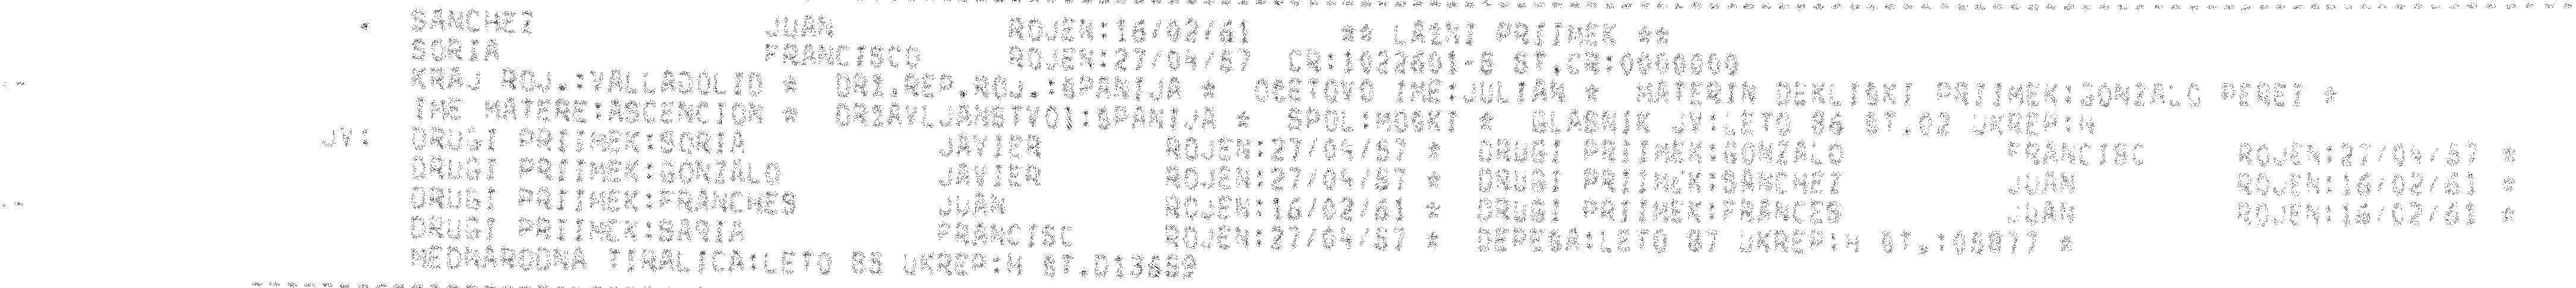 * SANCHEZ JUAN ROJEN:16/02/61 ** LAZNI PRIIMEK **
SORIA FRANCISCO ROJEN:27/04/57 CR:1022601-6 ST.CR:0000000
KRAJ ROJ.:VALLADOLID * DRZ.REP.ROJ.:SPANIJA * OCETOVO IME:JULIAN * MATERIN DEKLISKI PRIIMEK:GONZALO PEREZ *
IME MATERE:ASCENCION * DRZAVLJANSTVO1:SPANIJA * SPOL:MOSKI * GLASNIK JV:LETO 86 ST.02 UKREP:H
JV: DRUGI PRIIMEK:SORIA JAVIER ROJEN:27/04/57 * DRUGI PRIIMEK:GONZALO FRANCISC ROJEN:27/04/57 *
DRUGI PRIIMEK:GONZALO JAVIER ROJEN:27/04/57 * DRUGI PRIIMEK:SANCHEZ JUAN ROJEN:16/02/61 *
DRUGI PRIIMEK:FRANCHES JUAN ROJEN:16/02/61 * DRUGI PRIIMEK:FRANCES JUAN ROJEN:16/02/61 *
DRUGI PRIIMEK:SARIA FRANCISC ROJEN:27/04/57 * DEPESA:LETO 87 UKREP:H ST.:05877 *
MEDNARODNA TIRALICA:LETO 85 UKREP:H ST.D13659